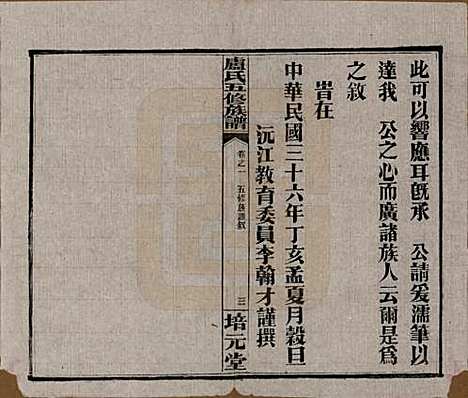 此可以響應耳既承　公請爰濡筆以
達我　公之心而廣諸族人云爾是爲
之敘
旹在
中華民國三十六年丁亥孟夏月穀旦
沅江教育委員李翰才謹撰
盧氏五修族譜
卷之一　五修族譜敘
三
培元堂